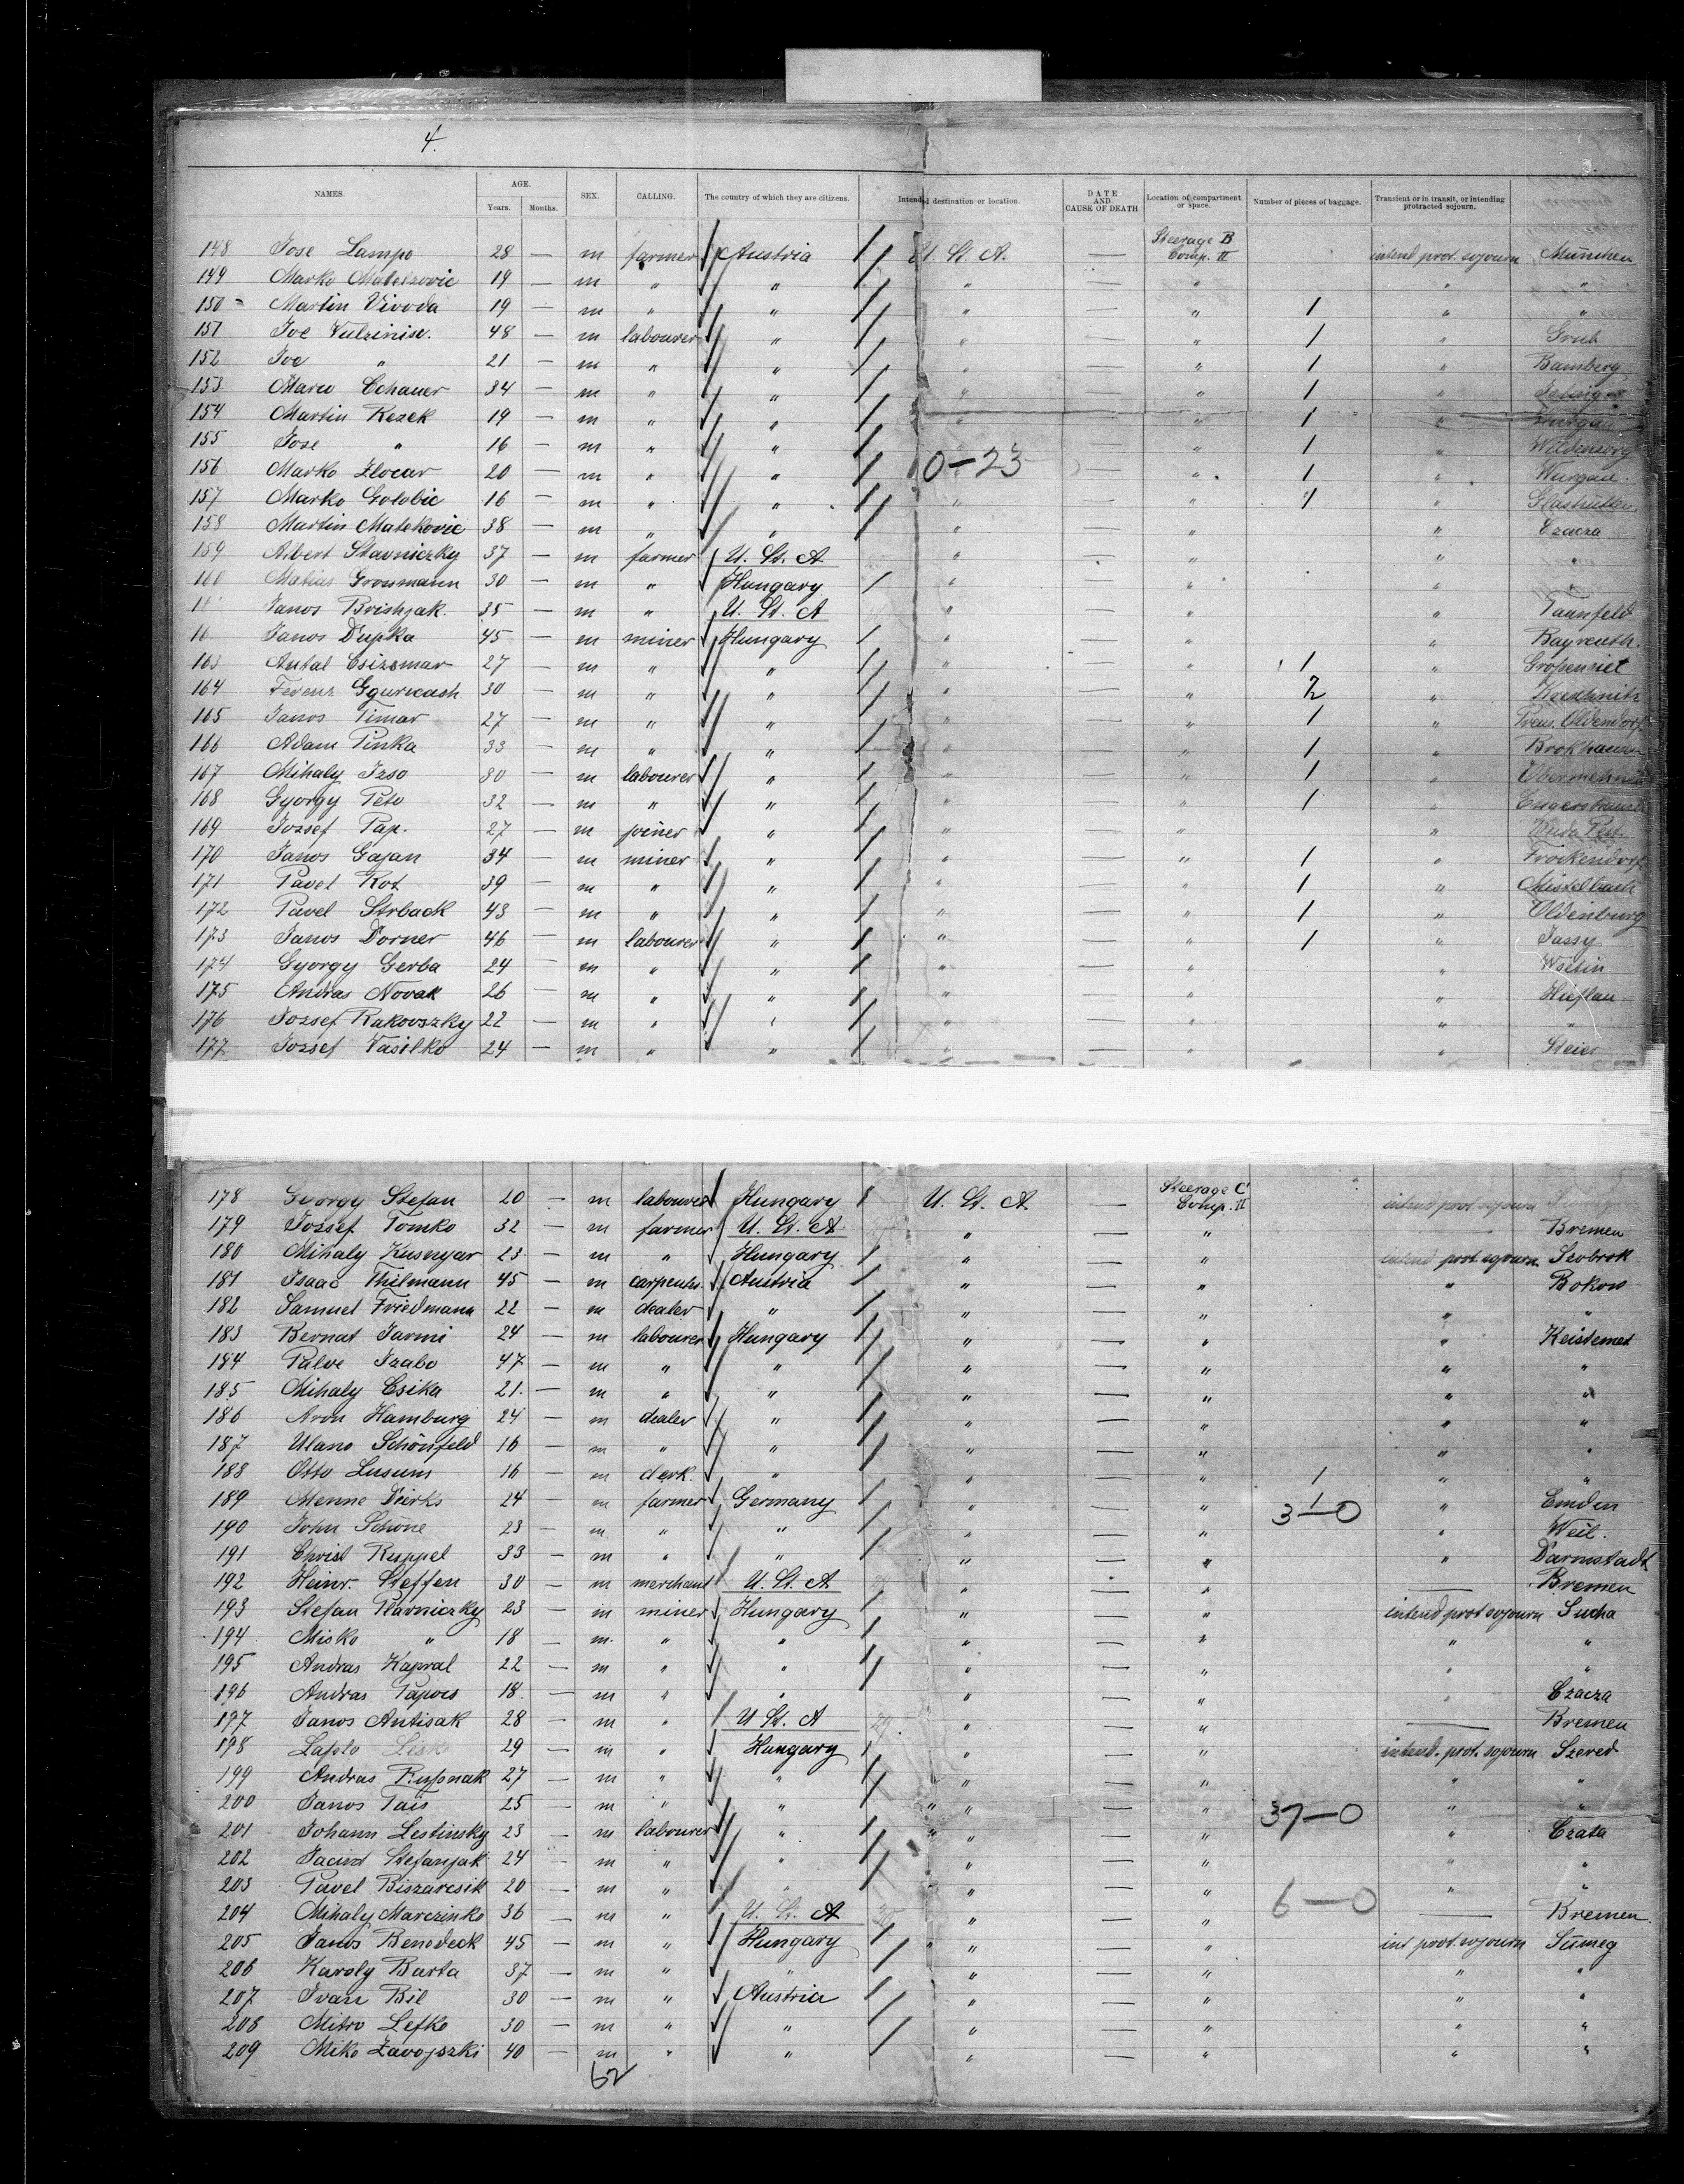 4.
NAMES. AGE. Years. Months. SEX. CALLING. The country of which they are citizens. Intended destination or location. DATE AND CAUSE OF DEATH Location of compartment or space. Number of pieces of baggage. Transient or in transit, or intending protracted sojourn.
148 Jose Lampo 28 — m farmer Austria U. St. A. — Steerage B Comp. II intend prot. sojourn München
149 Marko 19 — m " " " — " " "
150 Martin Vivoda 19 — m " " " — " 1 " "
151 Joe 48 — m labourer " " — " 1 " Grub
152 Joe " 21 — m " " " — " 1 " Bamberg
153 34 — m " " " — " 1 "
154 Martin Kezek 19 — m " " " — " 1 "
155 Jose " 16 — m " " — " 1 " Wildensorg
156 Marko Zlocar 20 — m " " 0-23 — " 1 " Wurgau.
157 Marko Golobic 16 — m " " " — " 1 " Glashütten
158 Martin Matekovic 38 — m " " " — " " Czacza
159 Albert Stavniczky 37 — m farmer U. St. A " — " " "
160 Matias Grossmann 30 — m " Hungary " — " " "
Janos Brishjak. 35 — m " U. St. A " — " " Taunfeld
Janos Dupka 45 — m miner Hungary " — " " Bayreuth.
163 Antal Csizsmar 27 — m " " " — " 1 "
164 Ferenz 30 — m " " " — " 2 "
165 Janos Timar 27 — m " " " — " 1 " Preus. Oldendorf
166 Adam Pinka 33 — m " " " — " 1 " Brokhausen
167 Mihaly Izso 30 — m labourer " " — " 1 "
168 Gyorgy Peto 32 — m " " " — " 1 "
169 Jozsef Pap. 27 — m joiner " " — " "
170 Janos Gajan 34 — m miner " " — " 1 " Trockendorf
171 Pavel Kot 39 — m " " " — " 1 " Mistelbach
172 Pavel Strback 43 — m " " " — " 1 " Oldenburg
173 Janos Dorner 46 — m labourer " " — " 1 " Jassy
174 Gyorgy Gerba 24 — m " " " — " " Wsetin
175 Andras Novak 26 — m " " " — " " Hieflau
176 Jozsef Rakovszky 22 — m " " " — " " "
177 Jozsef Vasilko 24 — m " " " — " " Steier
178 Gyorgy Stefan 20 — m labourer Hungary U. St. A — Steerage C Comp. II intend prot. sojourn
179 Jozsef Tomko 32 — m farmer U. St. A " — " — Bremen
180 Mihaly Kusnyar 23 — m " Hungary " — " intend prot. sojourn Szobrok
181 Isaac Thilmann 45 — m carpenter. Austria " — " " Bokow
182 Samuel Friedmann 22 — m dealer " " — " " "
183 Bernat Jarmi 24 — m labourer Hungary " — " " Keistemet
184 Palve Izabo 47 — m " " " — " " "
185 Mihaly Csika 21. — m " " " — " " "
186 Aron Hamburg 24 — m dealer " " — " " "
187 Ulano Schönfeld 16 — m " " " — " " "
188 Otto Lusum 16 — m clerk. " " — " 1 " "
189 Menne Dierks 24 — m farmer Germany " — " 1 " Emden
3-0
190 John Schöne 23 — m " " " — " " Weil.
191 Christ Ruppel 33 — m " " " — " " Darmstadt
192 Heinr. Steffen 30 — m merchant U. St. A " — " — Bremen
193 Stefan Plavniczky 23 — m miner Hungary " — " intend prot sojourn Sucha
194 Misko " 18 — m. " " " — " " "
195 Andras Kapral 22 — m " " " — " " "
196 Andras Papves 18. — m " " " — " " Czacza
197 Janos Antisak 28 — m " U St. A 29 " — " — Bremen
198 Laslo 29 — m " Hungary " — " intend. prot. sojourn Szered
199 Andras Russnak 27 — m " " " — " " "
200 Janos Tais 25 — m " " " — " 37-0 " "
201 Johann Lestinsky 23 — m labourer " " — " " Czata
202 Stefanjak 24 — m " " " — " " "
203 Pavel Biszarcsik 20 — m " " " — " 6-0 " "
204 Mihaly Marczinko 36 — m " U. St. A 30 " — " — Bremen.
205 Janos Benedeck 45 — m " Hungary " — " int prot. sojourn Sümeg
206 Karoly Barta 37 — m " " " — " " "
207 Ivan Bil 30 — m " Austria " — " " "
208 Mitro Lefko 30 — m " " " — " " "
209 Miko Zavojszki 40 — m " " " — " " "
62